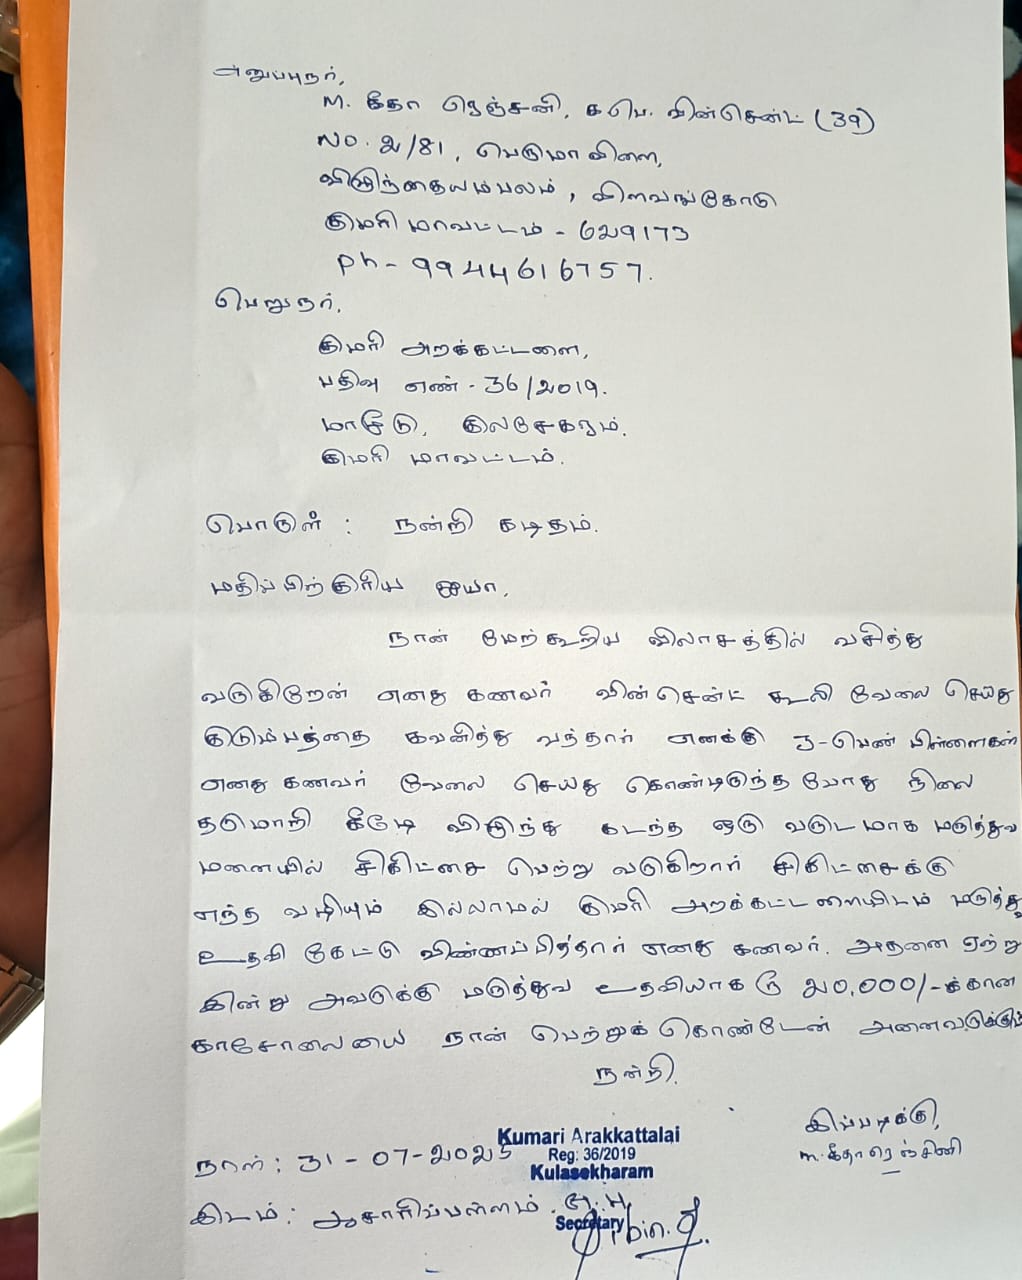 அனுப்புநர்,
M. கீதா ரெஞ்சனி, க.பெ. வின்சென்ட் (39)
NO. 2/81, பெருமாவிளை,
விழுந்தையம்பலம், விளவங்கோடு
குமரி மாவட்டம் - 629173
Ph - 9944616757.
பெறுநர்,
குமரி அறக்கட்டளை,
பதிவு எண் - 36/2019.
குலசேகரம்.
குமரி மாவட்டம்.
பொருள் : நன்றி கடிதம்.
மதிப்பிற்குரிய ஐயா,
நான் மேற்கூறிய விலாசத்தில் வசித்து
வருகிறேன் எனது கணவர் வின்சென்ட் கூலி வேலை செய்து
குடும்பத்தை கவனித்து வந்தார் எனக்கு 3-பெண் பிள்ளைகள்
எனது கணவர் வேலை செய்து கொண்டிருந்த போது நிலை
தடுமாறி கீழே விழுந்து கடந்த ஒரு வருடமாக மருத்துவ
மனையில் சிகிட்சை பெற்று வருகிறார் சிகிட்சைக்கு
எந்த வழியும் இல்லாமல் குமரி அறக்கட்டளையிடம் மருத்துவ
உதவி கேட்டு விண்ணப்பித்தார் எனது கணவர். அதனை ஏற்று
இன்று அவருக்கு மருத்துவ உதவியாக ரூ 20,000/-க்கான
காசோலையை நான் பெற்றுக் கொண்டேன் அனைவருக்கும்
நன்றி.
இப்படிக்கு,
M. கீதா ரெஞ்சினி
Kumari Arakkattalai
Reg: 36/2019
Kulasekharam
நாள் : 31-07-2025
இடம் : ஆசாரிப்பள்ளம். G.H
Secretary